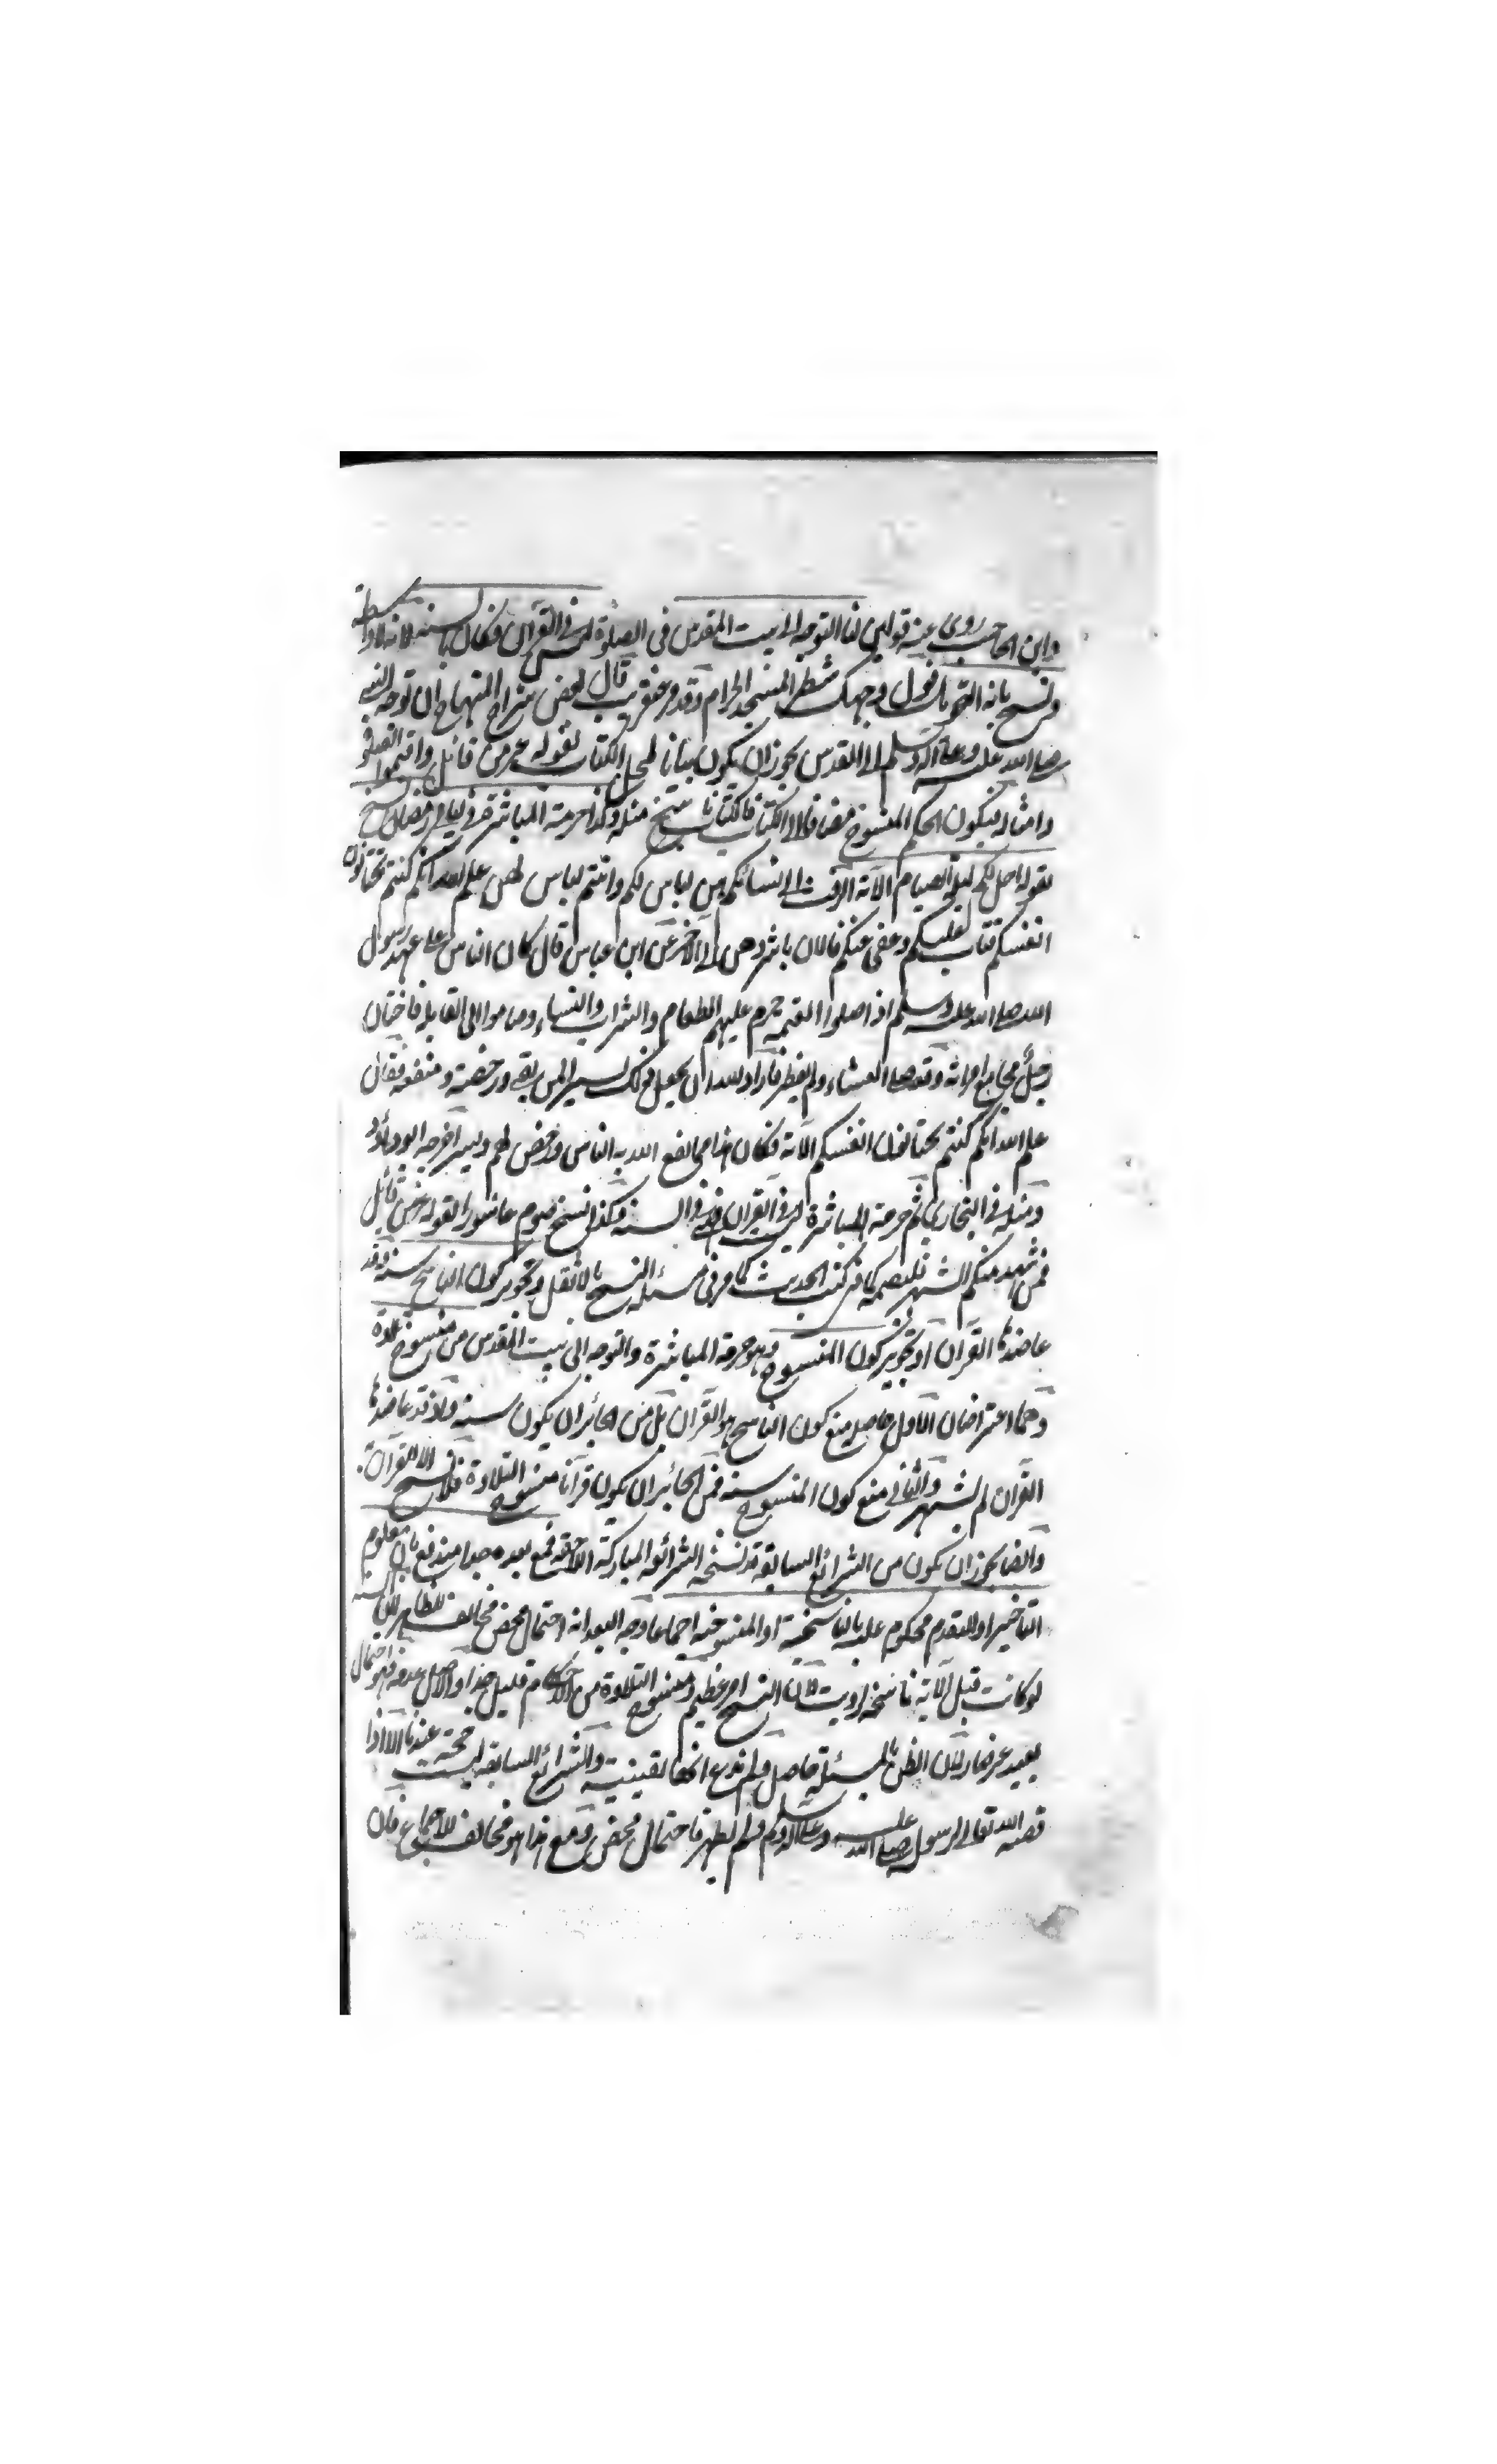 وابن الحاجب روى عنه قولين لنا التوجه الى بيت المقدس فى الصلوة ليس فى القران فكان بالسنة لانه لا واسطة
ونسخ بانه التحويل فول وجهك شطر المسجد الحرام وقد مر عنقريب قال بعض شراح المنهاج ان توجه النبى
صلى الله عليه وعلى آله وسلم الى المقدس يجوز ان يكون بيانا لمجمل الكتاب لقوله عز من قائل واقيموا الصلوة
وامثاله فيكون الحكم المنسوخ مضافا الى الكتاب فالكتاب نسخ مثله وكذا حرمة المباشرة فى ليالى رمضان نسخ
بقوله احل لكم ليلة الصيام الآية الرفث الى نسائكم هن لباس لكم وانتم لباس لهن علم الله انكم كنتم تختانون
انفسكم فتاب عليكم وعفى عنكم فالان باشروهن الى الآخر عن ابن عباس قال كان الناس على عهد رسول
الله صلى الله عليه وسلم اذا صلوا العتمة حرم عليهم الطعام والشراب والنساء وصاموا الى القابلة فاختان
رجل مجامع امراته وقد صلى العشاء ولم يفطر فاراد الله ان يجعل ذلك يسيرا لمن بقى ورخصة ومنفعة فقال
علم الله انكم كنتم تختانون انفسكم الآية فكان هذا مما نفع الله به الناس ورخص لهم ويسر اخرجه ابو داؤد
ومثله فى البخارى ثم حرمة المباشرة ليس فى القران فهى فى السنة وكذا نسخ صوم عاشورا بقوله عز من قائل
فمن شهد منكم الشهر فليصمه كما فى كتب الحديث كما مر فى مسئلة النسخ بالاثقل وتجويز كون الناسخ سنة وقد
عاضدها القران او تجويز كون المنسوخ وهو حرمة المباشرة والتوجه الى بيت المقدس من منسوخ تلاوة
وهما اعتراضان الاول حاصله منع كون الناسخ هو القران بل من الجائز ان يكون سنة واذ قد عاضدها
القران لم يشتهر والثانى منع كون المنسوخ سنة فمن الجائز ان يكون قرآنا منسوخ التلاوة فلا نسخ الا للقرآن
وايضا يجوز ان يكون من الشرائع السابقة قد نسخه الشرائع المباركة اللاحقة فمع بعده جدا مندفع بان معلوم
التاخير او التقدم محكوم عليه بالناسخية او المنسوخية اجماعا وجه البعد انه احتمال محض مخالف للظاهر لان السنة
لو كانت قبل الآية ناسخة لرويت لان النسخ امر عظيم ومنسوخ التلاوة من الاحكام قليل جدا والاصل عدمه فهو احتمال
بعيد عرفا لان الظن بالمسئلة حاصل ولم ندع انها يقينية والشرائع السابقة ليست حجة عندنا الا اذا
قصه الله تعالى لرسول صلى الله عليه وعلى آله وسلم ولم يظهر فاحتمال محض ومع هذا هو مخالف للاجماع فان